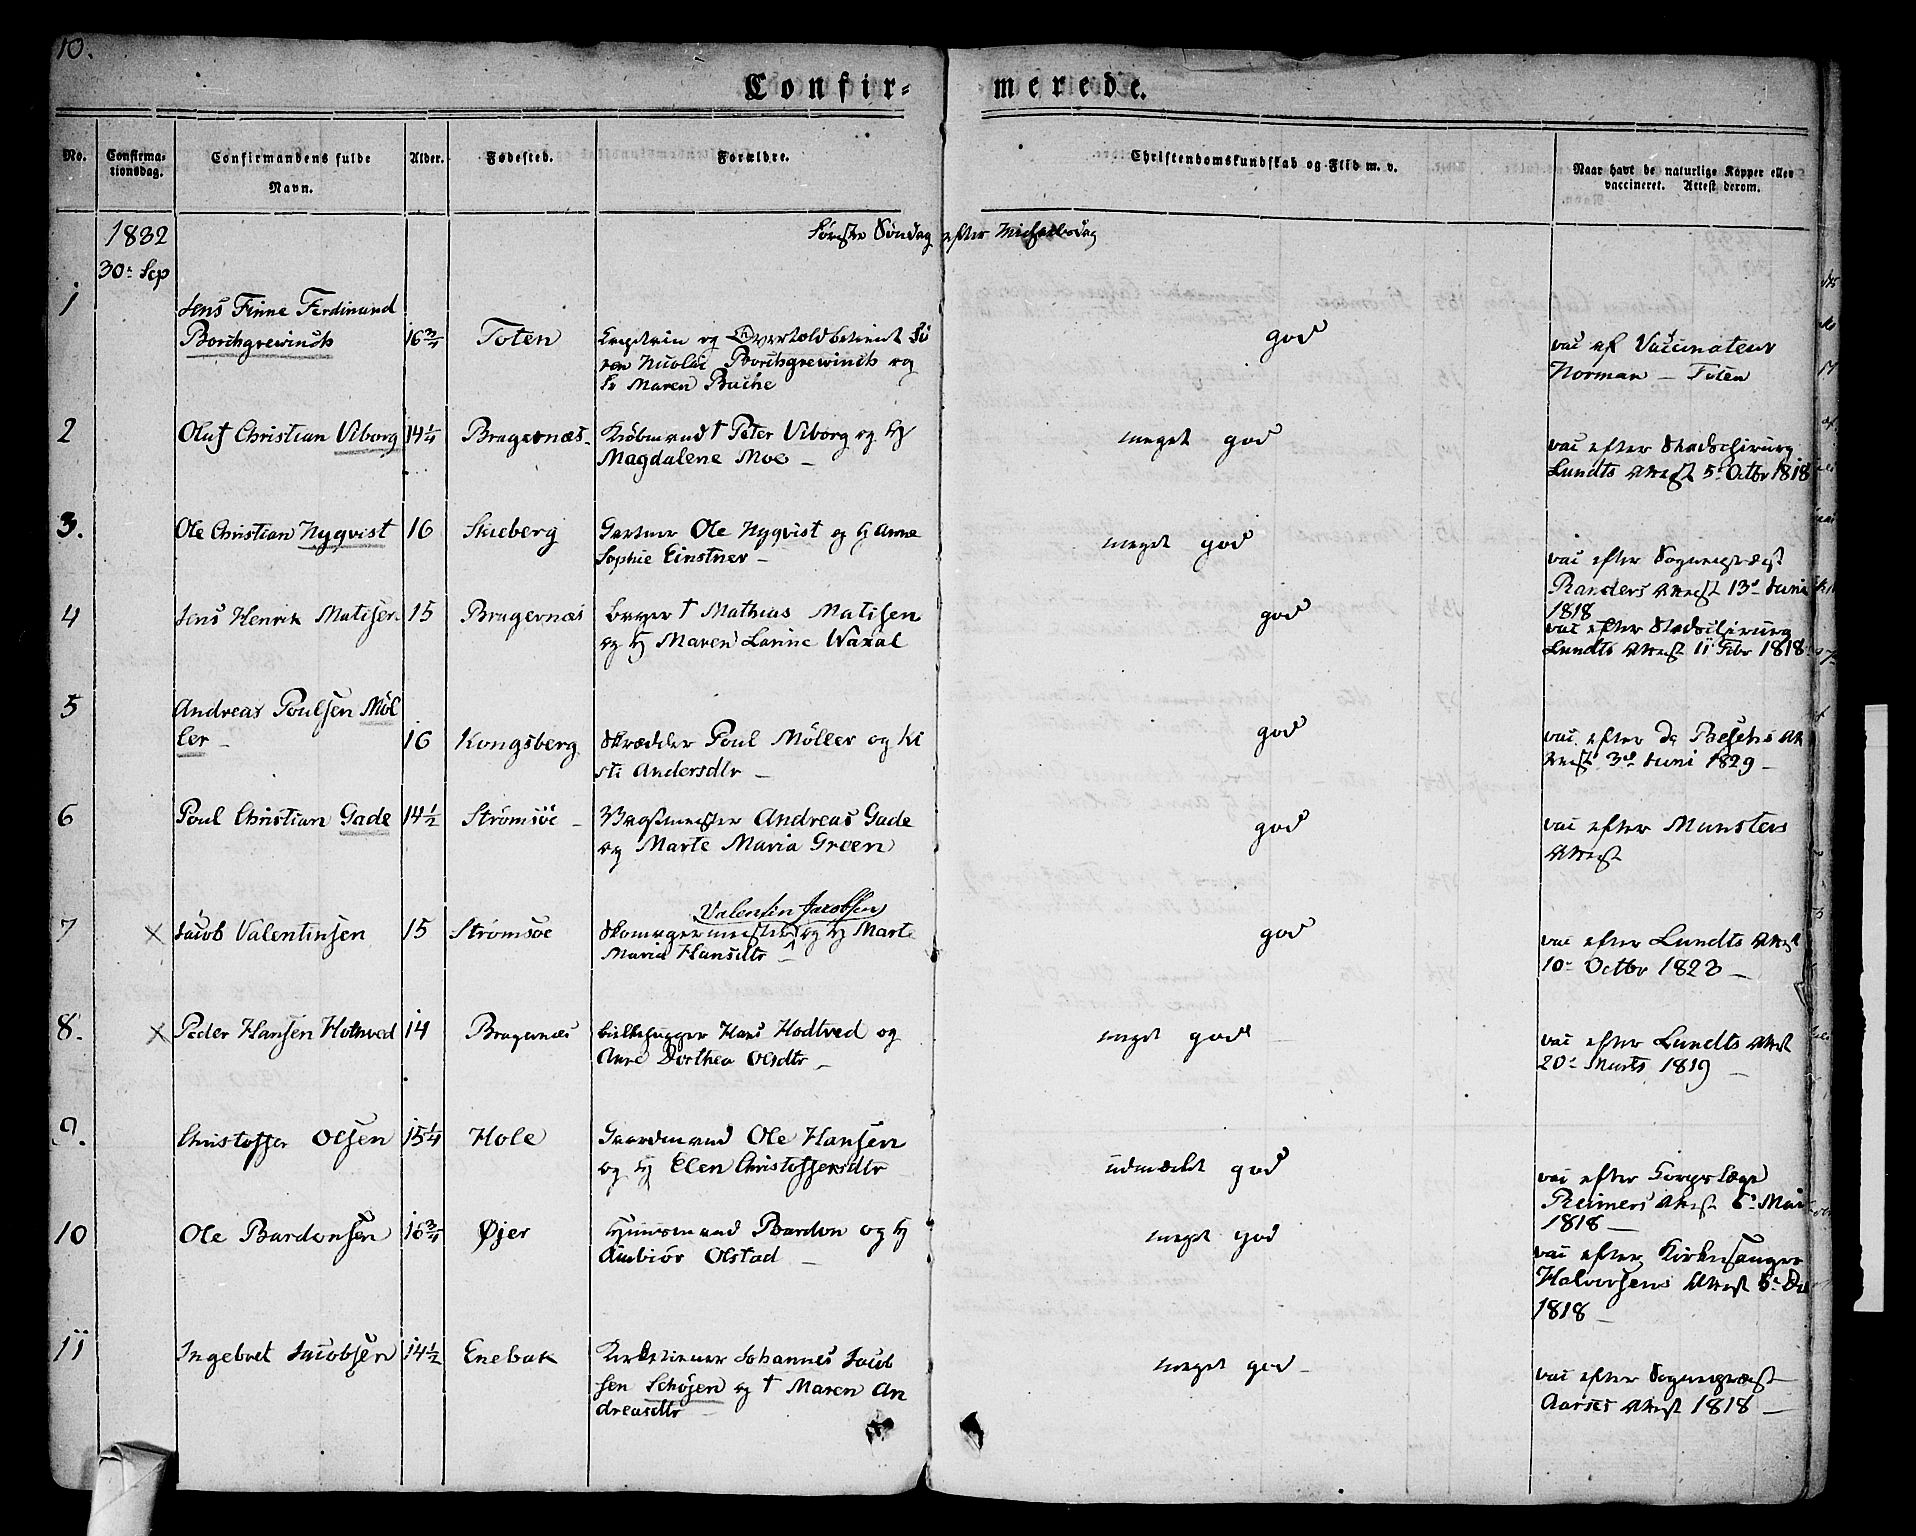 10.
Confirmerede.
No.
Confirma-
tionsdag.
Confirmandens fulde
Navn.
Alder.
Fødested.
Forældre.
Christendomskundskab og Flid m. v.
Naar havt de naturlige Kopper eller
vaccineret. Attest derom.
1832
30: Sep
Søndag efter Michelsdag
1
Jens Finne Ferdinand
Borchgrewinck
16 3/4
Toten
Captein og Overtoldbetient Sö
ren Nicolai Borchgrewinck og
Fr Maren Bache
god
vac af Vaccinateur
Norman - Toten
2
Oluf Christian Viborg
14 1/4
Bragernæs -
Kiöbmand † Peter Viborg og Hu
Magdalene Moe -
meget god
vac efter Stadschirurg
Lundts Attest 5: Octbr 1818
3.
Ole Christian Nyqvist
16
Skieberg
Gartner Ole Nyqvist og H Anne
Sophie Einstner -
meget god
vac efter Sognepræst
Randers Attest 13d Juni
1818
4
Jens Henrik Matisen
15
Bragernæs
Bager † Mathias Matisen
og H Maren Larine Waxal
god
vac efter Stadschirurg
Lundts Attest 11 Febr 1818
5
Andreas Poulsen Möl
ler -
16
Kongsberg
Skrædder Poul Möller og Ki
sti Andersdtr -
god
vac. efter Dr Beschs At
test 3d Juni 1829 -
6
Poul Christian Gade
14 1/2
Strömsöe -
Vagtmester Andreas Gade
og Marte Maria Green
god
vac efter Munsters
Attest
7
× Jacob Valentinsen
15
Strömsöe
Valentin Jacobsen
Skomagermester og H Marte
Maria Hansdtr -
god
vac efter Lundts Attest
10: Octbr 1823 -
8.
× Peder Hansen Hothved
14
Bragernæs
Hans Hodtved og
Anne Dorthea Olsdtr -
meget god
vac efter Lundts Attest
20: Marts 1819 -
9.
Christoffer Olsen
15 1/4
Hole
Gaardmand Ole Hansen
og H Elen Christoffersdtr
udmærket god
vac efter Corpslæge
Reimers Attest 6: Mai
1818 -
10
Ole Bardonsen
16 3/4
Øjer
Huusmand Bardon og H
Ambiör Olstad -
meget god
vac efter Kirkesanger
Halvorsens Attest 6: Dec
1818 -
11
Ingebret Jacobsen
14 1/2
Enebak
Kirketiener Johannes Jacob
sen Schöjen og † Maren An
dreasdtr -
meget god -
vac efter Sognepræst
Aarses Attest 1818 -